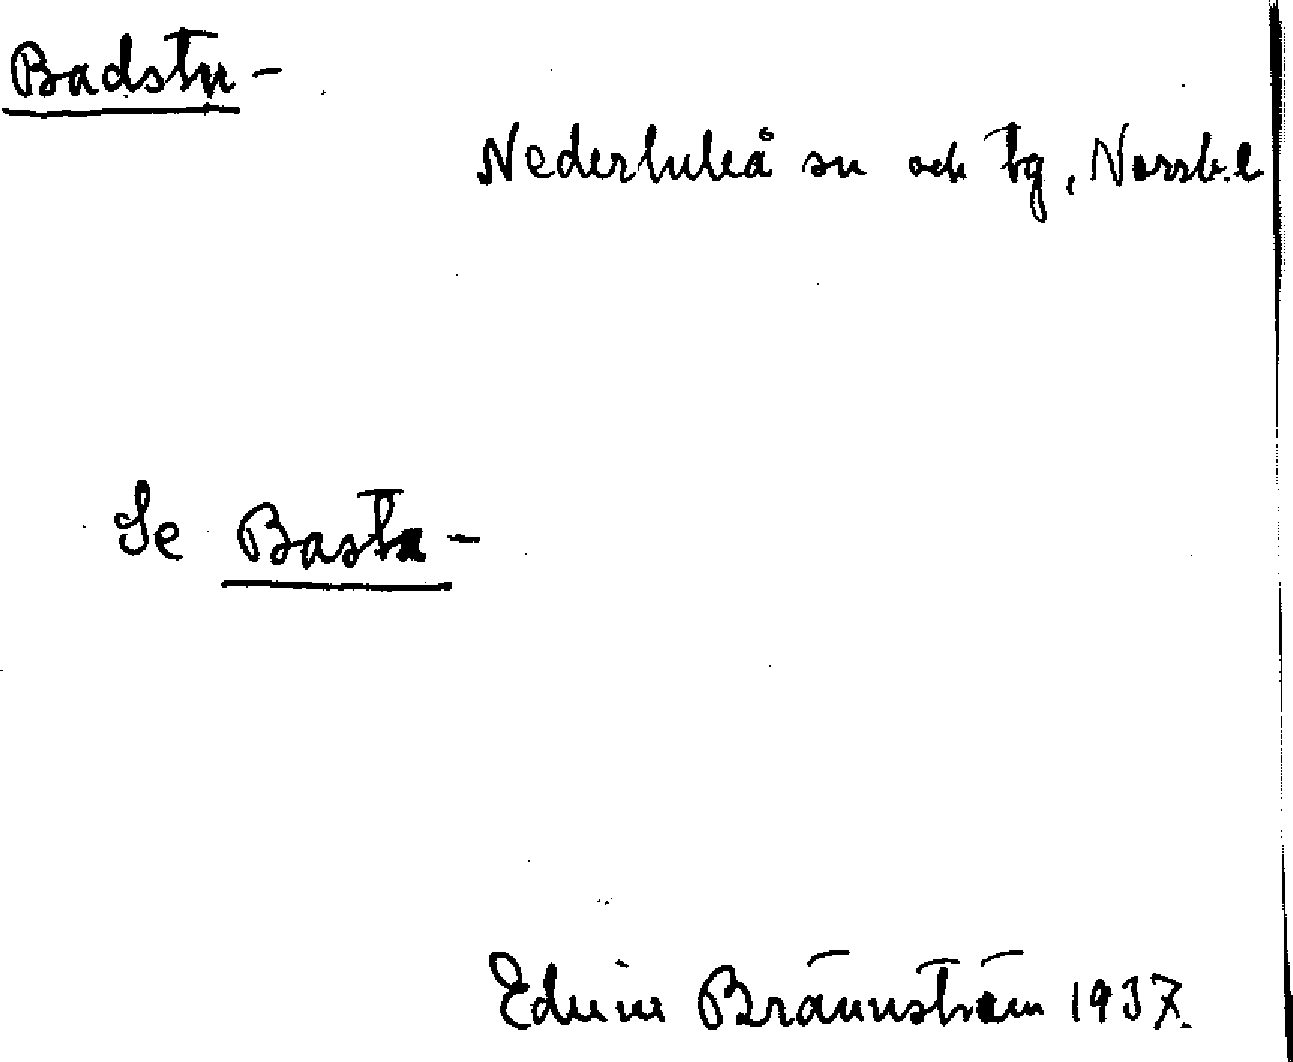 Badstu-
Nederluleå sn och tg, Norrb. l
Se Basta-
Edvin Brännström 1937.